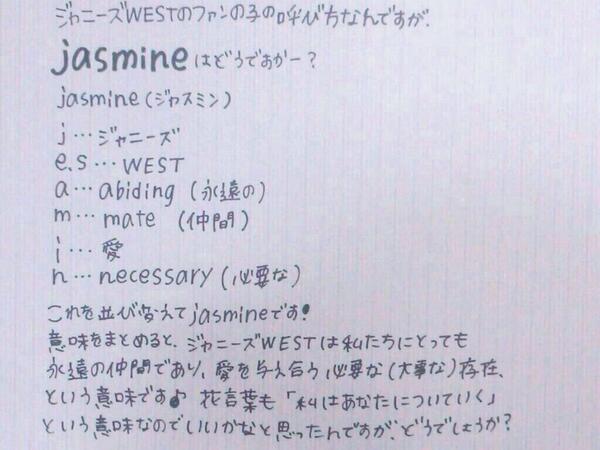 ジャニーズWESTのファンの子の呼び方なんですが、
jasmineはどうですかー?
jasmine(ジャスミン)
j…ジャニーズ
e,s…WEST
a…abiding (永遠の)
m…mate (仲間)
i…愛
n…necessary(必要な)
これを並び変えてjasmineです!
意味をまとめると、ジャニーズWESTは私たちにとっても
永遠の仲間であり、愛を与え合う必要な(大事な)存在、
という意味です♪ 花言葉も「私はあなたについていく」
という意味なのでいいかなと思ったんですが、どうでしょうか?